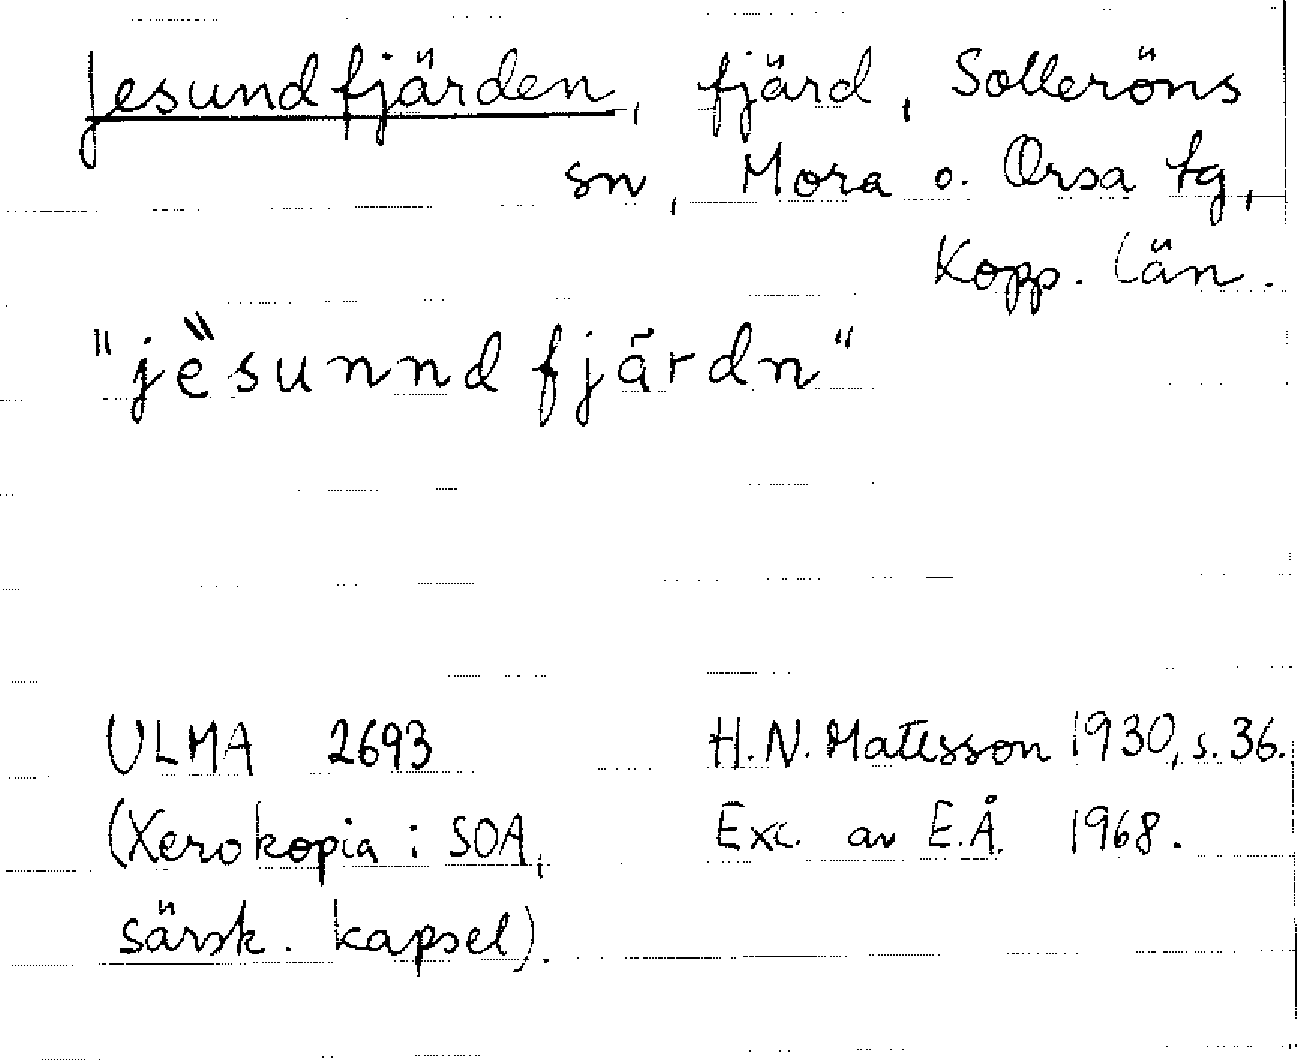 Jesundfjärden, fjärd, Solleröns
sn, Mora o. Orsa tg,
Kopp. län.
"jèsunnd fjärdn"
ULMA 2693 H.N. Matsson 1930, s. 36.
(Xerokopia i SOA, Exc. av E.Å. 1968.
särsk. kapsel).